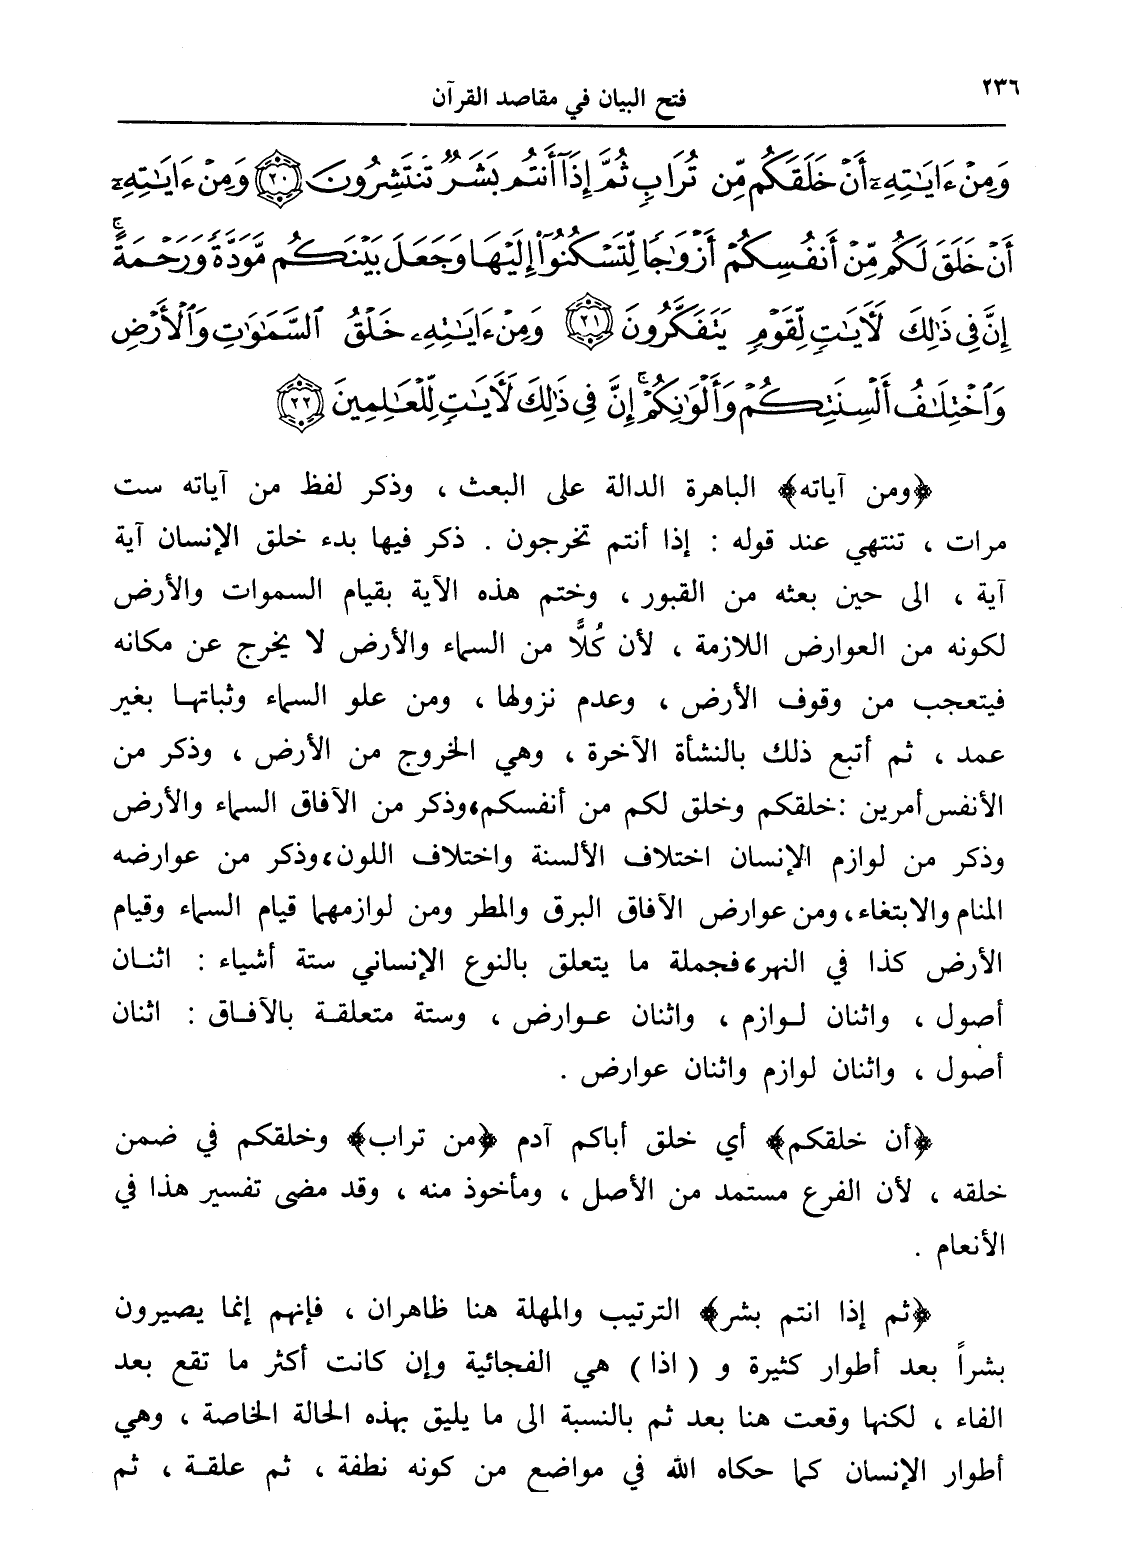 ٢٣٦
فتح البيان في مقاصد القرآن
وَمِنْ ءَايَـٰتِهِۦٓ أَنْ خَلَقَكُم مِّن تُرَابٍ ثُمَّ إِذَآ أَنتُم بَشَرٌ تَنتَشِرُونَ ﴿٢٠﴾ وَمِنْ ءَايَـٰتِهِۦٓ
أَنْ خَلَقَ لَكُم مِّنْ أَنفُسِكُمْ أَزْوَٰجًا لِّتَسْكُنُوٓا۟ إِلَيْهَا وَجَعَلَ بَيْنَكُم مَّوَدَّةً وَرَحْمَةً ۚ
إِنَّ فِى ذَٰلِكَ لَـَٔايَـٰتٍ لِّقَوْمٍ يَتَفَكَّرُونَ ﴿٢١﴾ وَمِنْ ءَايَـٰتِهِۦ خَلْقُ ٱلسَّمَـٰوَٰتِ وَٱلْأَرْضِ
وَٱخْتِلَـٰفُ أَلْسِنَتِكُمْ وَأَلْوَٰنِكُمْ ۚ إِنَّ فِى ذَٰلِكَ لَـَٔايَـٰتٍ لِّلْعَـٰلِمِينَ ﴿٢٢﴾
﴿ومن آياته﴾ الباهرة الدالة على البعث ، وذكر لفظ من آياته ست
مرات ، تنتهي عند قوله : إذا أنتم تخرجون . ذكر فيها بدء خلق الإنسان آية
آية ، الى حين بعثه من القبور ، وختم هذه الآية بقيام السموات والأرض
لكونه من العوارض اللازمة ، لأن كُلًّا من السماء والأرض لا يخرج عن مكانه
فيتعجب من وقوف الأرض ، وعدم نزولها ، ومن علو السماء وثباتها بغير
عمد ، ثم أتبع ذلك بالنشأة الآخرة ، وهي الخروج من الأرض ، وذكر من
الأنفس أمرين : خلقكم وخلق لكم من أنفسكم، وذكر من الآفاق السماء والأرض
وذكر من لوازم الإنسان اختلاف الألسنة واختلاف اللون، وذكر من عوارضه
المنام والابتغاء، ومن عوارض الآفاق البرق والمطر ومن لوازمهما قيام السماء وقيام
الأرض كذا في النهر، فجملة ما يتعلق بالنوع الإنساني ستة أشياء : اثنان
أصول ، واثنان لوازم ، واثنان عوارض ، وستة متعلقة بالآفاق : اثنان
أصول ، واثنان لوازم واثنان عوارض .
﴿أن خلقكم﴾ أي خلق أباكم آدم ﴿من تراب﴾ وخلقكم في ضمن
خلقه ، لأن الفرع مستمد من الأصل ، ومأخوذ منه ، وقد مضى تفسير هذا في
الأنعام .
﴿ثم إذا انتم بشر﴾ الترتيب والمهلة هنا ظاهران ، فإنهم إنما يصيرون
بشراً بعد أطوار كثيرة و ( اذا ) هي الفجائية وإن كانت أكثر ما تقع بعد
الفاء ، لكنها وقعت هنا بعد ثم بالنسبة الى ما يليق بهذه الحالة الخاصة ، وهي
أطوار الإنسان كما حكاه الله في مواضع من كونه نطفة ، ثم علقة ، ثم